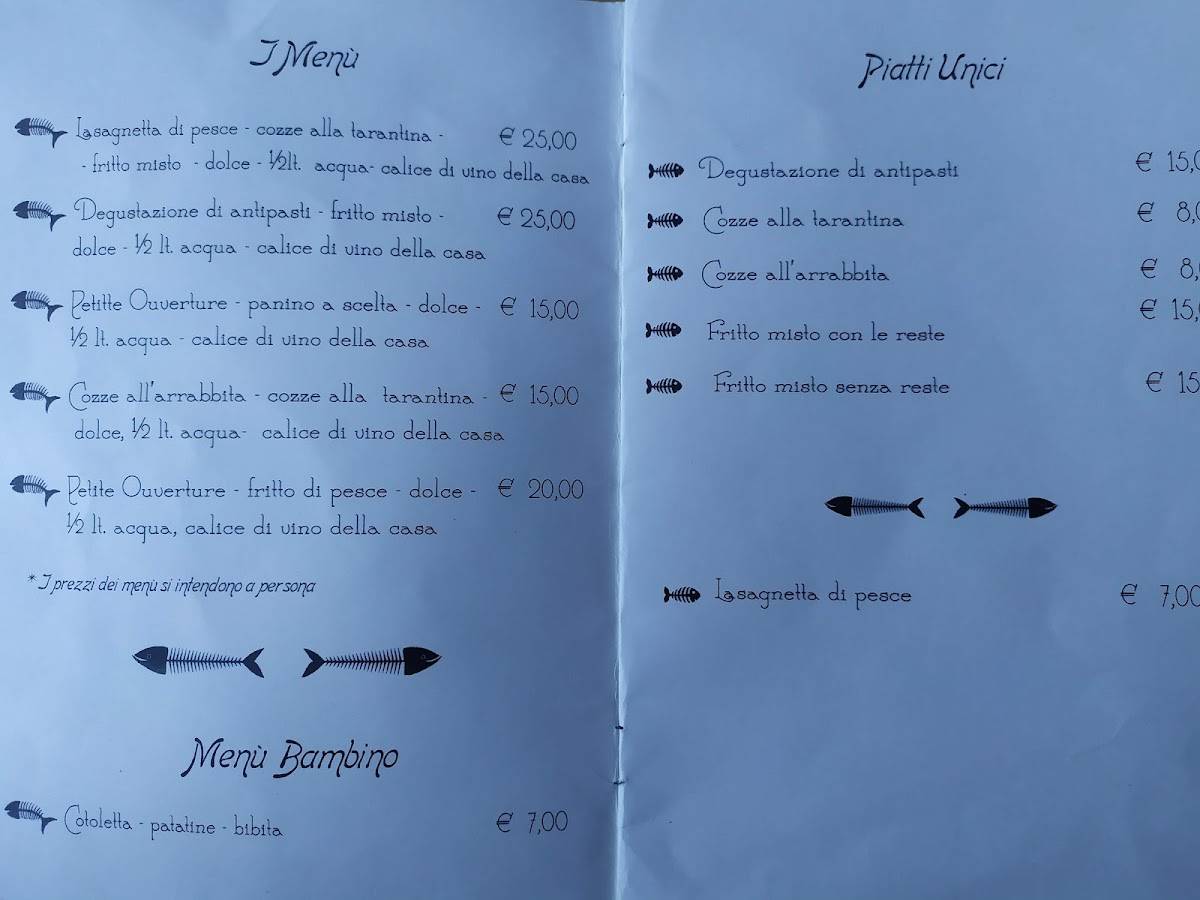 I Menù
Lasagnetta di pesce - cozze alla tarantina - € 25,00
- fritto misto - dolce - ½lt. acqua- calice di vino della casa
Degustazione di antipasti - fritto misto - € 25,00
dolce - ½ lt. acqua - calice di vino della casa
Petitte Ouverture - panino a scelta - dolce - € 15,00
½ lt. acqua - calice di vino della casa
Cozze all'arrabbita - cozze alla tarantina - € 15,00
dolce, ½ lt. acqua- calice di vino della casa
Petite Ouverture - fritto di pesce - dolce - € 20,00
½ lt. acqua, calice di vino della casa
* I prezzi dei menù si intendono a persona
Menù Bambino
Cotoletta - patatine - bibita € 7,00
Piatti Unici
Degustazione di antipasti € 15,0
Cozze alla tarantina € 8,0
Cozze all'arrabbita € 8,
Fritto misto con le reste € 15,
Fritto misto senza reste € 15
Lasagnetta di pesce € 7,00